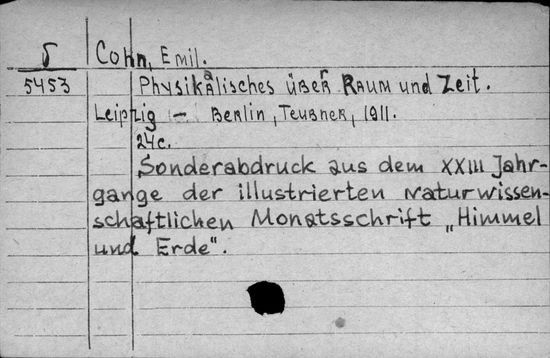 Б Cohn, Emil.
5453 Physikalisches über Raum und Zeit.
Leipzig – Berlin, Teubner, 1911.
24c.
Sonderabdruck aus dem XXIII Jahr-
gange der illustrierten Naturwissen-
schaftlichen Monatsschrift „Himmel
und Erde".